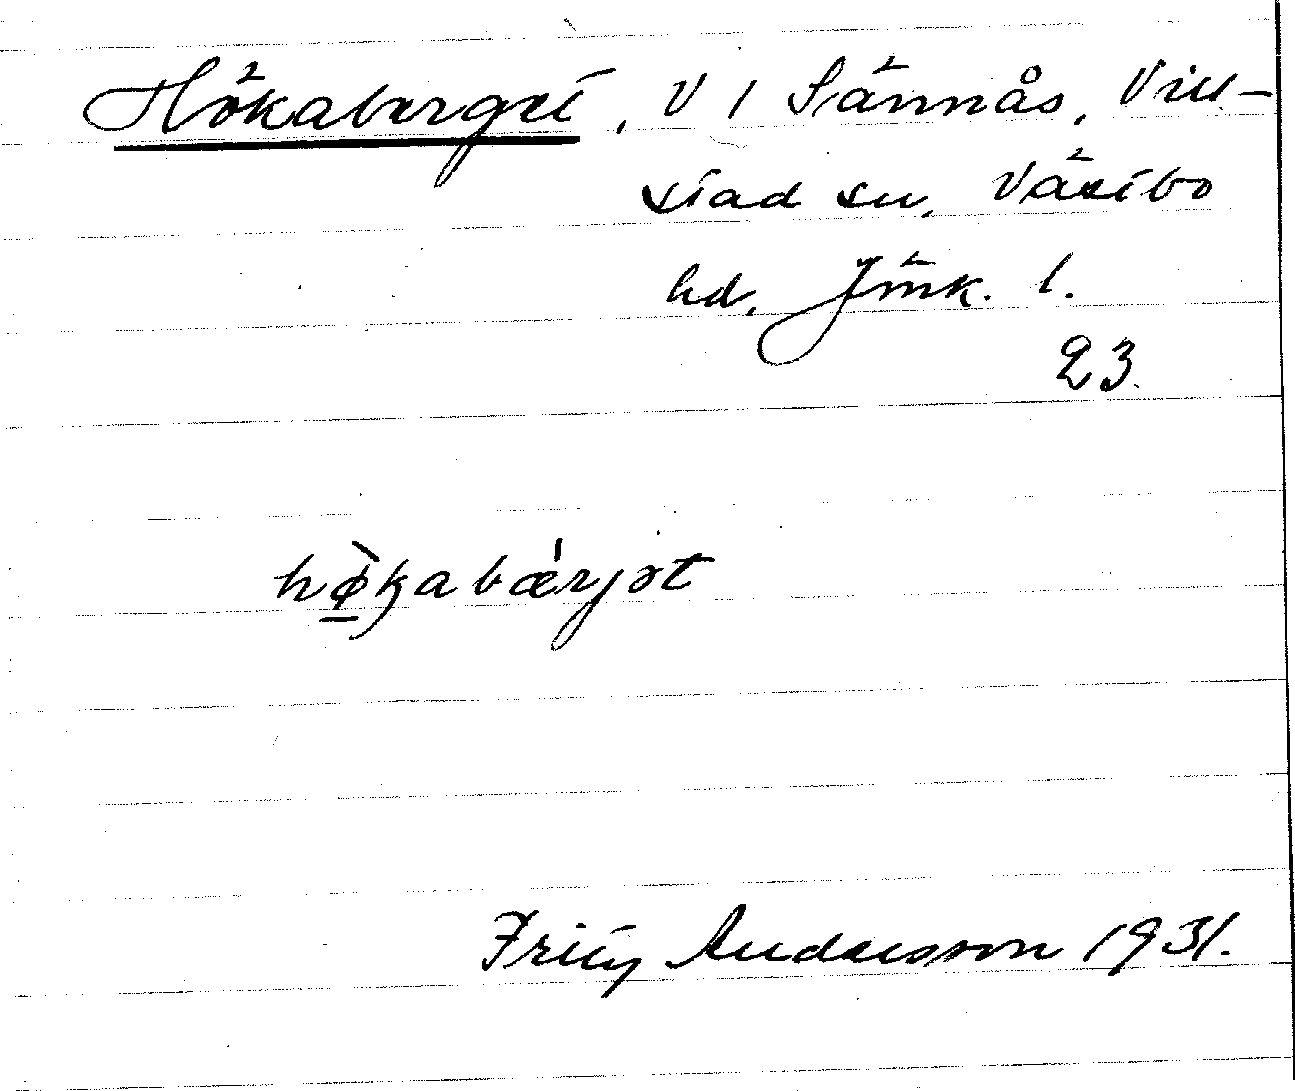 Hökaberget, V 1 Sännås, Vill-
stad sn, Västbo
hd, Jönk. l.
23.
hø̀kabæ̍rjət
Fritz Andersson 1931.